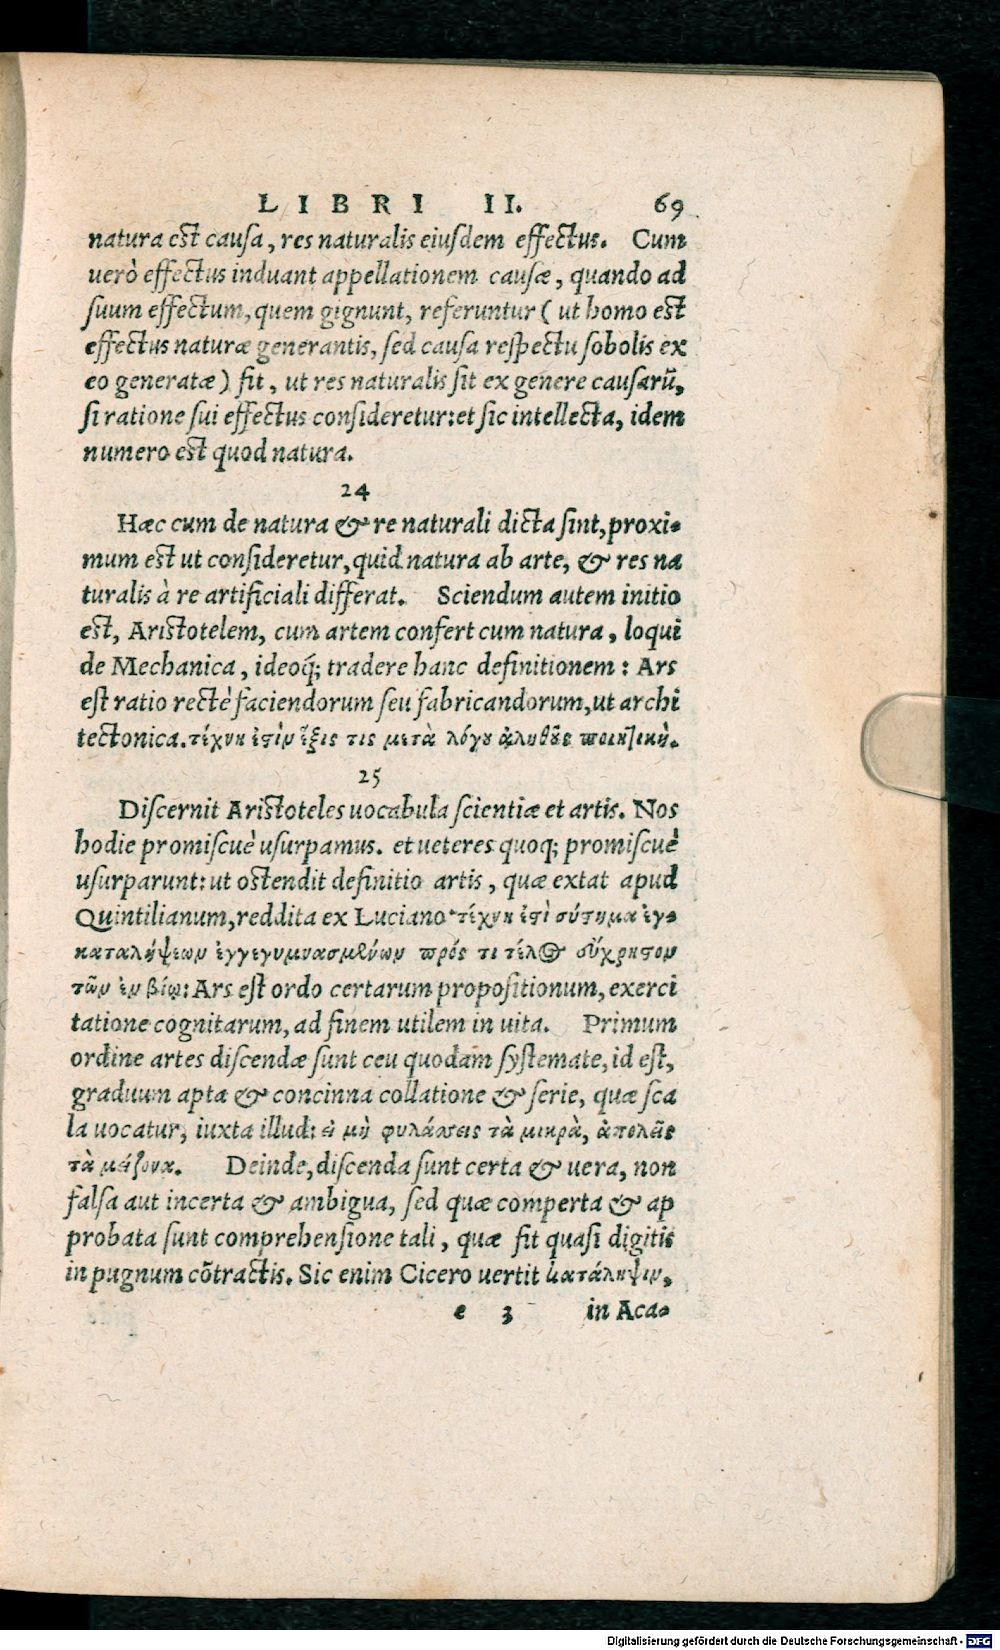 LIBRI II. 69
natura est causa, res naturalis eiusdem effectus. Cum
uerò effectus induant appellationem causæ, quando ad
suum effectum, quem gignunt, referuntur ( ut homo est
effectus naturæ generantis, sed causa respectu sobolis ex
eo generatæ) fit, ut res naturalis sit ex genere causarũ,
si ratione sui effectus consideretur: et sic intellecta, idem
numero est quod natura.
24
Hæc cum de natura & re naturali dicta sint, proxi-
mum est ut consideretur, quid natura ab arte, & res na
turalis à re artificiali differat. Sciendum autem initio
est, Aristotelem, cum artem confert cum natura, loqui
de Mechanica, ideoq́; tradere hanc definitionem: Ars
est ratio rectè faciendorum seu fabricandorum, ut archi
tectonica. τέχνη ἐϛὶν ἕξις τις μετὰ λόγου ἀληθοῦς ποιητική.
25
Discernit Aristoteles uocabula scientiæ et artis. Nos
hodie promiscuè usurpamus. et ueteres quoq; promiscuè
usurparunt: ut ostendit definitio artis, quæ extat apud
Quintilianum, reddita ex Luciano τέχνη ἐϛὶ σύϛημα ἐγ-
καταλήψεων ἐγγεγυμνασμένων πρός τι τέλος εὔχρηϛον
τῶν ἐν βίῳ: Ars est ordo certarum propositionum, exerci
tatione cognitarum, ad finem utilem in uita. Primum
ordine artes discendæ sunt ceu quodam systemate, id est,
graduum apta & concinna collatione & serie, quæ sca
la uocatur, iuxta illud: εἰ μὴ φυλάσσεις τὰ μικρὰ, ἀπολεῖς
τὰ μείζονα. Deinde, discenda sunt certa & uera, non
falsa aut incerta & ambigua, sed quæ comperta & ap
probata sunt comprehensione tali, quæ fit quasi digitis
in pugnum cõtractis. Sic enim Cicero uertit κατάληψιν,
e 3 in Aca-
Digitalisierung gefördert durch die Deutsche Forschungsgemeinschaft - DFG